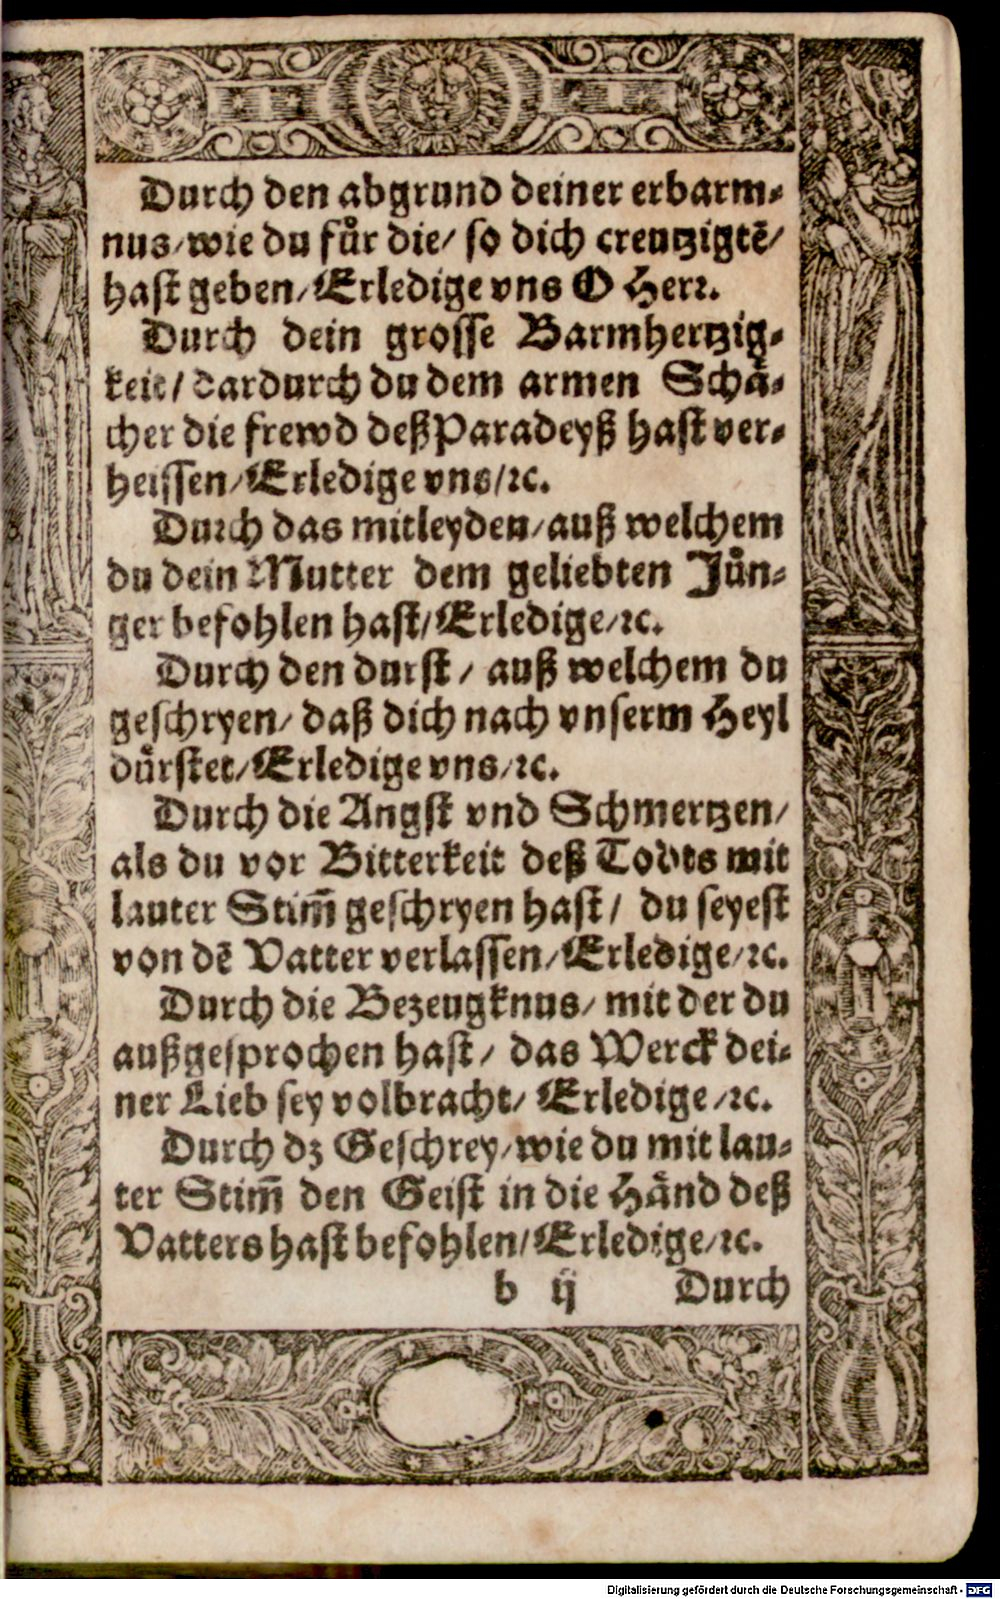 Durch den abgrund deiner erbarm⸗
nus/ wie du fuͤr die/ so dich creutzigtē/
hast geben/ Erledige vns O Herꝛ.
Durch dein grosse Barmhertzig⸗
keit/ dardurch du dem armen Schaͤ⸗
cher die frewd deß Paradeyß hast ver⸗
heissen/ Erledige vns/ ꝛc.
Durch das mitleyden/ auß welchem
du dein Mutter dem geliebten Juͤn⸗
ger befohlen hast/ Erledige/ ꝛc.
Durch den durst/ auß welchem du
geschryen/ daß dich nach vnserm Heyl
duͤrstet/ Erledige vns/ ꝛc.
Durch die Angst vnd Schmertzen/
als du vor Bitterkeit deß Todts mit
lauter Stim̄ geschryen hast/ du seyest
von dē Vatter verlassen/ Erledige/ ꝛc.
Durch die Bezeugknus/ mit der du
außgesprochen hast/ das Werck dei⸗
ner Lieb sey volbracht/ Erledige/ ꝛc.
Durch dz Geschrey/ wie du mit lau⸗
ter Stim̄ den Geist in die Haͤnd deß
Vatters hast befohlen/ Erledige/ ꝛc.
b ij Durch
Digitalisierung gefördert durch die Deutsche Forschungsgemeinschaft - DFG